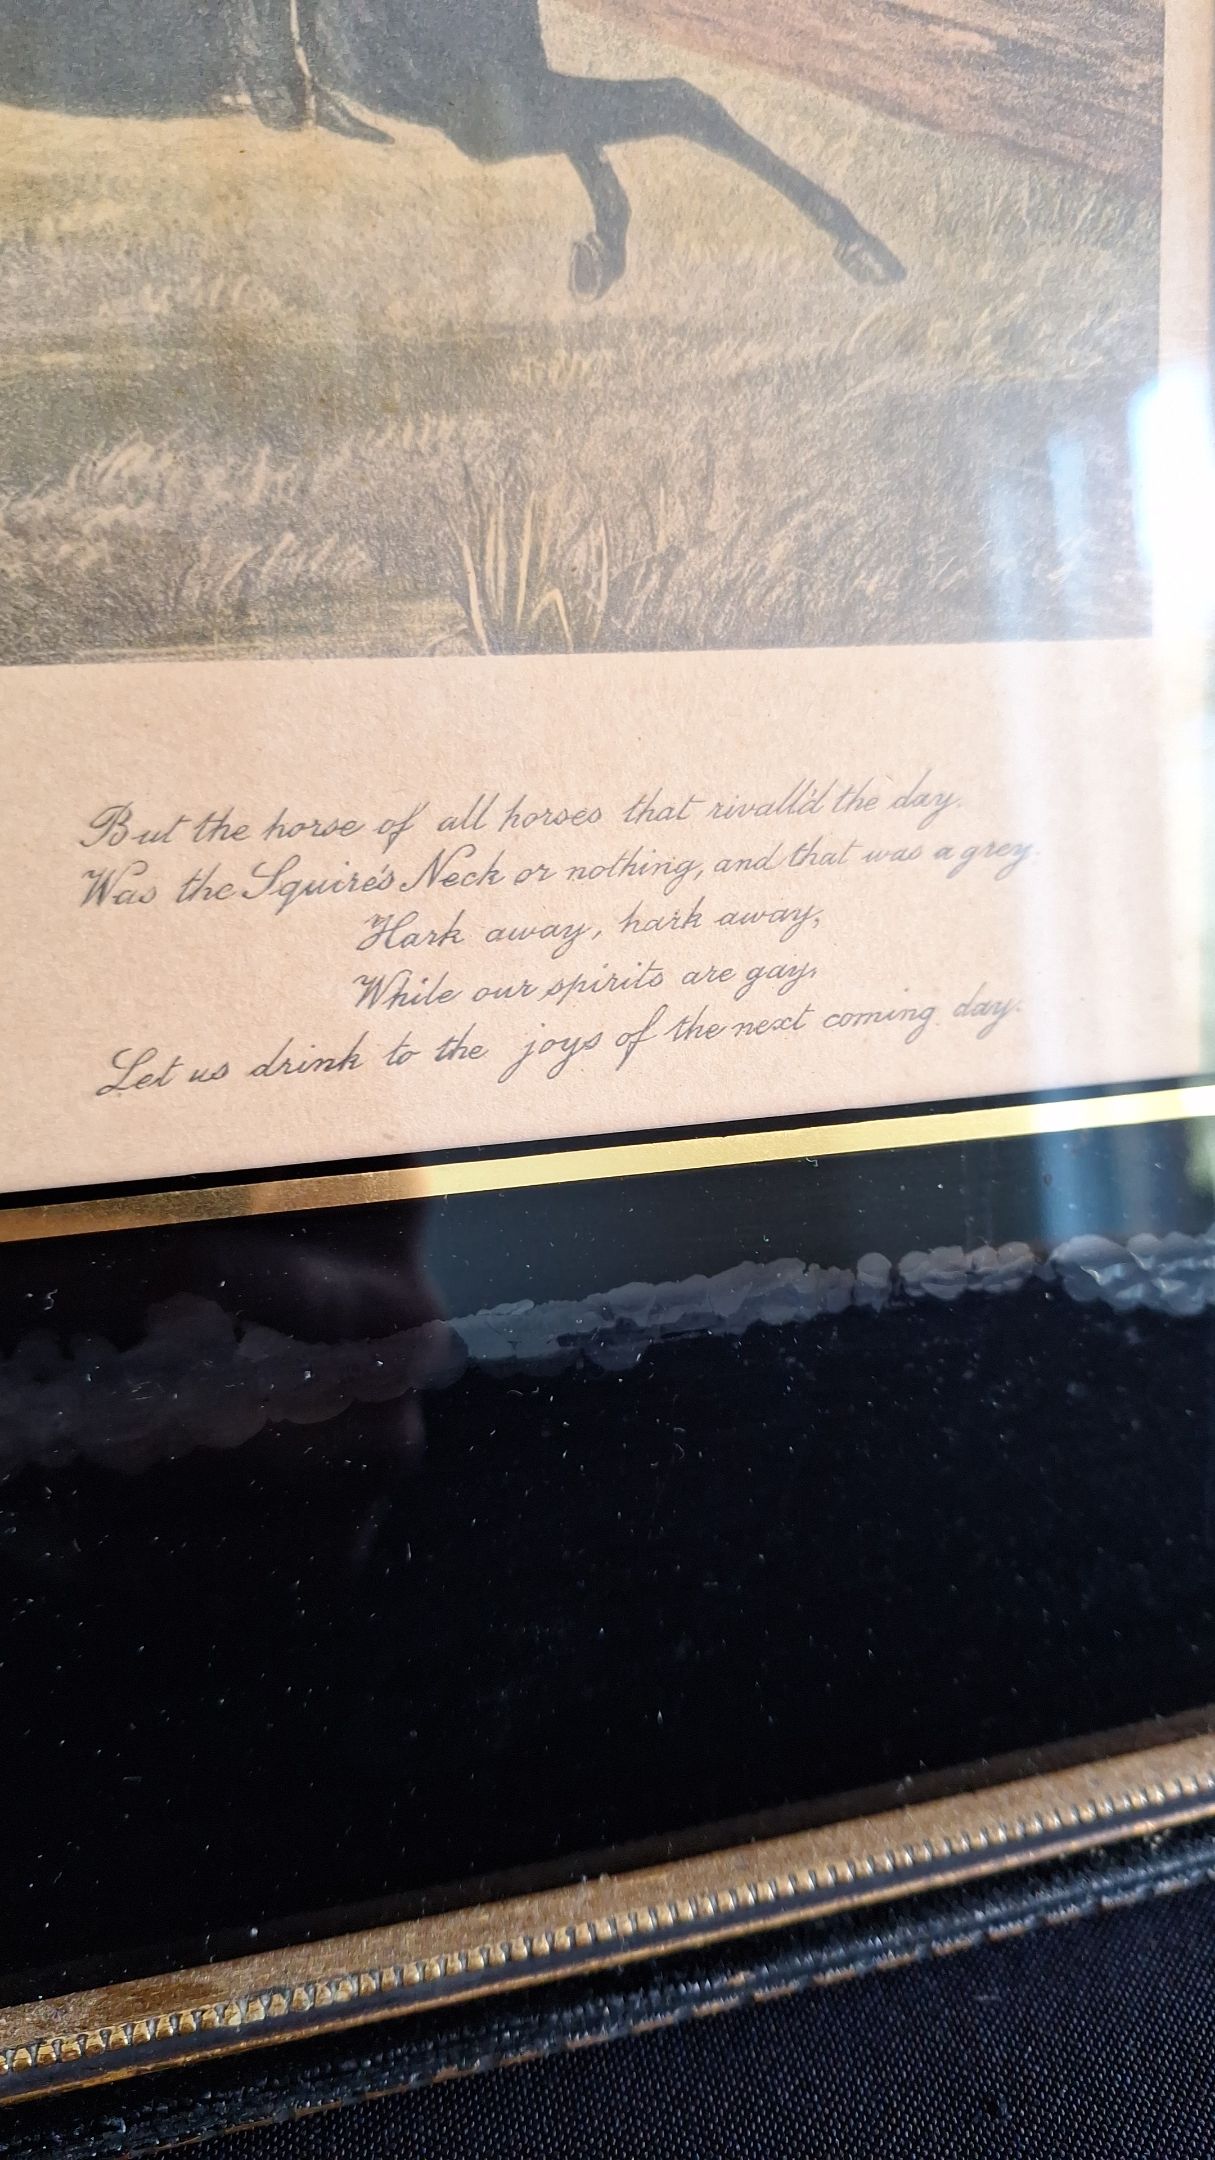 But the horse of all horses that rivall'd the day.
Was the Squire's Neck or nothing, and that was a grey.
Hark away, hark away,
While our spirits are gay,
Let us drink to the joys of the next coming day.